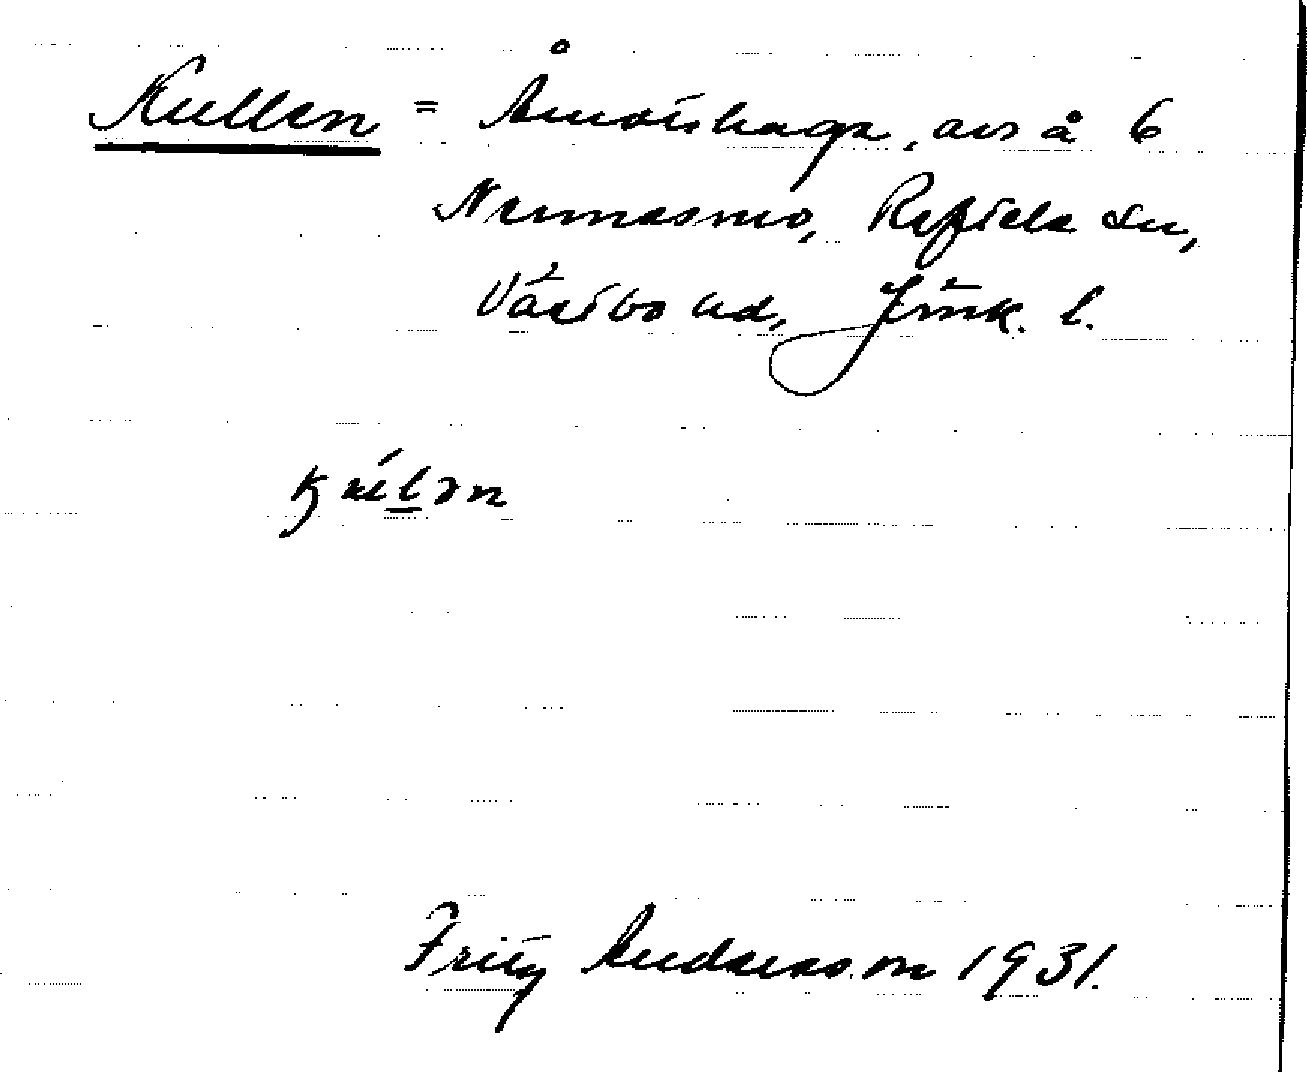 Kullen = Åmotshaga, avs å 6
Nennesmo, Reftele sn,
Västbo hd, Jönk. l.
Fritz Andersson 1931.